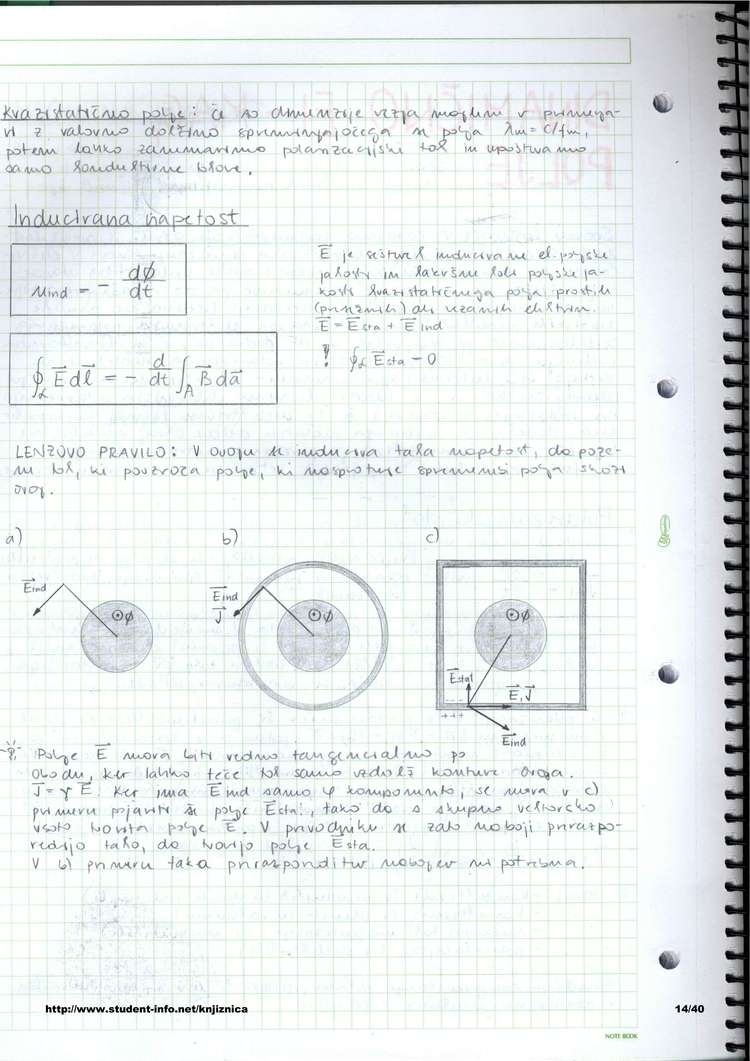 Kvazistatično polje: če so dimenzije vezja majhne v primerja-
vi z valovno dolžino spreminjajočega se polja λm = c/fm,
potem lahko zanemarimo polarizacijski tok in upoštevamo
samo konduktivne tokove.
Inducirana napetost
uind = - dφ/dt
E⃗ je seštevek inducirane el. poljske
jakosti in kakršne koli poljske ja-
kosti kvazistatičnega polja prostih
ali vezanih elektrin.
E⃗ = E⃗sta + E⃗ind
∮L E⃗ dl⃗ = - d/dt ∫A B⃗ da⃗
! ∮L E⃗sta = 0
LENZOVO PRAVILO: V ovoju se inducira taka napetost, da pože-
ne tok, ki povzroča polje, ki nasprotuje spremembi polja skozi
ovoj.
a) b) c)
E⃗ind ⊙φ
E⃗ind J⃗ ⊙φ
⊙φ E⃗sta E⃗,J⃗ +++ E⃗ind
Polje E⃗ mora biti vedno tangencialno po
obodu, ker lahko teče tok samo vzdolž konture ovoja.
J⃗ = γE⃗. Ker ima E⃗ind samo φ komponento, se mora v c)
primeru pojaviti še polje E⃗sta, tako da s skupno vektorsko
vsoto tvorita polje E⃗. V prevodniku se zato naboji prerazpo-
redijo tako, da tvorijo polje E⃗sta.
V b) primeru taka prerazporeditev nabojev ni potrebna.
http://www.student-info.net/knjiznica 14/40
NOTE BOOK